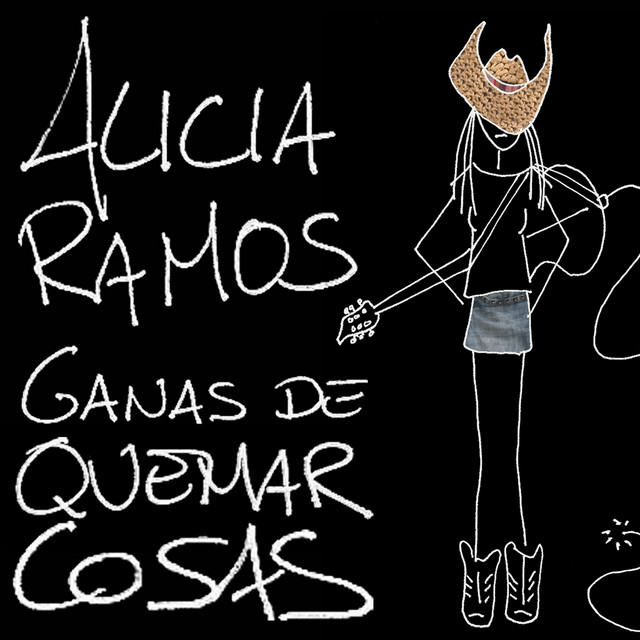 ALICIA
RAMOS
GANAS DE
QUEMAR
COSAS